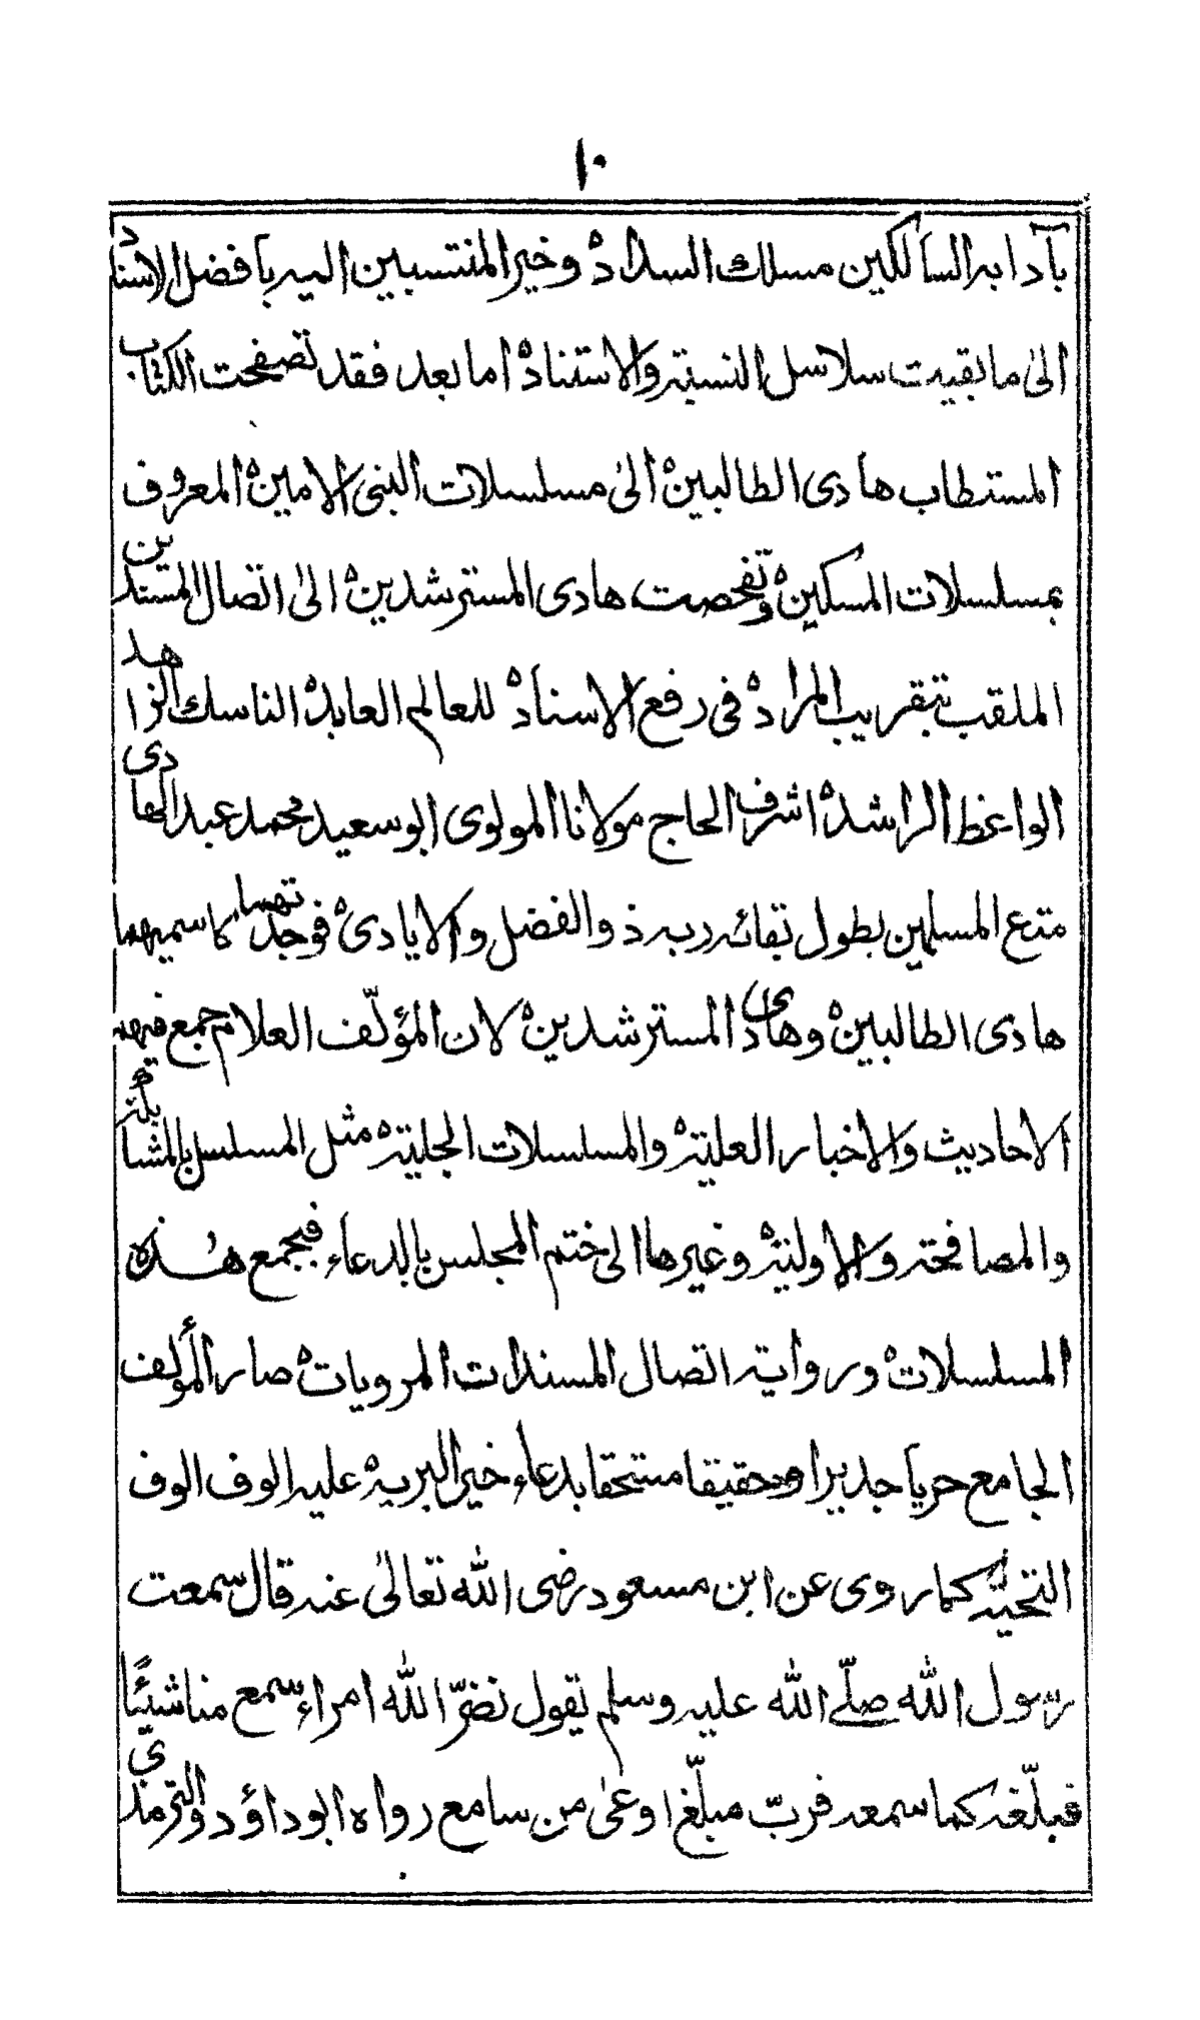 ١٠
بآدابه السالكين مسلك السداد ه وخير المنتسبين اليه بافضل الاسناد
الىٰ ما بقيت سلاسل النسبة والاستناد ه اما بعد فقد تصفحت الكتاب
المستطاب هادى الطالبين ه الىٰ مسلسلات النبى الامين ه المعروف
بمسلسلات المسكين ه وتفحصت هادى المسترشدين ه الىٰ اتصال المسندين
الملقب بتقريب المراد ه فى رفع الاسناد ه للعالم العابد ه الناسك الزاهد
الواعظ الراشد ه اشرف الحاج مولانا المولوى ابو سعيد محمد عبد الهادى
متع المسلمين بطول بقائه ربه ذو الفضل والايادى ه فوجدتهما كاسميهما
هادى الطالبين ه وهادى المسترشدين ه لان المؤلّف العلام جمع فيهما
الاحاديث والاخبار العلية ه والمسلسلات الجلية ه مثل المسلسل بالمشابكة
والمصافحة والاولية ه وغيرها الى ختم المجلس بالدعاء فبجمع هٰذه
المسلسلات ه ورواية اتصال المسندات المرويات ه صار المؤلف
الجامع حريا جديرا وحقيقا مستحقا بدعاء خير البرية ه عليه الوف الوف
التحيّة كما روى عن ابن مسعود رضى الله تعالىٰ عنه قال سمعت
رسول الله صلّے الله عليه وسلم يقول نضّر الله امراء سمع منا شيئًا
فبلّغه كما سمعه فربّ مبلّغ اوعىٰ من سامع رواه ابو داؤد والترمذي